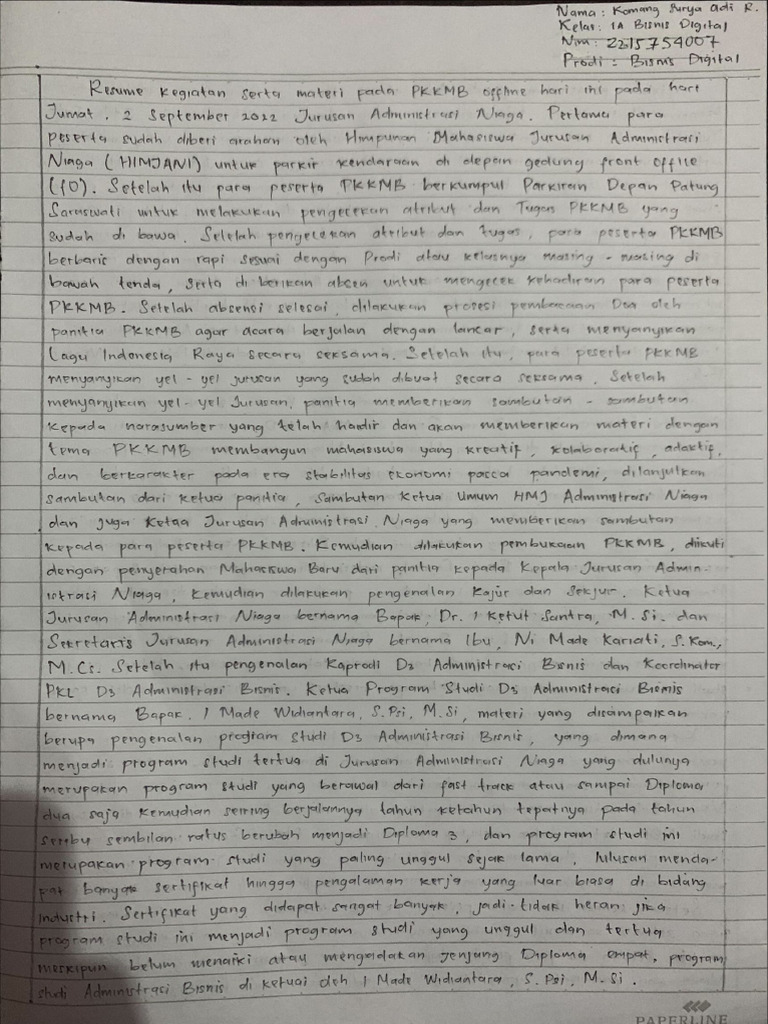 Nama : Komang Surya Adi R.
Kelas : 1A Bisnis Digital
Nim : 2215754007
Prodi : Bisnis Digital
Resume Kegiatan serta materi pada PKKMB offline hari ini pada hari
Jumat, 2 September 2022 Jurusan Administrasi Niaga. Pertama para
peserta sudah diberi arahan oleh Himpunan Mahasiswa Jurusan Administrasi
Niaga (HIMJANI) untuk parkir kendaraan di depan gedung front office
(FO). Setelah itu para peserta PKKMB berkumpul Parkiran Depan Patung
Saraswati untuk melakukan pengecekan atribut dan Tugas PKKMB yang
sudah di bawa. Setelah pengecekan atribut dan tugas, para peserta PKKMB
berbaris dengan rapi sesuai dengan Prodi atau kelasnya masing - masing di
bawah tenda, serta di berikan absen untuk mengecek kehadiran para peserta
PKKMB. Setelah absensi selesai, dilakukan prosesi pembacaan Doa oleh
panitia PKKMB agar acara berjalan dengan lancar, serta menyanyikan
Lagu Indonesia Raya secara seksama. Setelah itu, para peserta PKKMB
menyanyikan yel - yel jurusan yang sudah dibuat secara seksama. Setelah
menyanyikan yel- yel Jurusan, panitia memberikan sambutan - sambutan
kepada narasumber yang telah hadir dan akan memberikan materi dengan
tema PKKMB membangun mahasiswa yang kreatif, kolaboratif, adaktif,
dan berkarakter pada era stabilitas ekonomi pasca pandemi, dilanjutkan
sambutan dari ketua panitia, Sambutan Ketua Umum HMJ Administrasi Niaga
dan juga Ketua Jurusan Administrasi Niaga yang memberikan sambutan
kepada para peserta PKKMB. Kemudian dilakukan pembukaan PKKMB, diikuti
dengan penyerahan Mahasiswa Baru dari panitia kepada Kepala Jurusan Admin-
istrasi Niaga, kemudian dilakukan pengenalan Kajur dan Sekjur. Ketua
Jurusan Administrasi Niaga bernama Bapak, Dr. I Ketut Santra, M. Si. dan
Sekretaris Jurusan Administrasi Niaga bernama Ibu, Ni Made Kariati, S. Kom.,
M. Cs. Setelah itu pengenalan Kaprodi D3 Administrasi Bisnis dan Koordinator
PKL D3 Administrasi Bisnis. Ketua Program Studi D3 Administrasi Bisnis
bernama Bapak. I Made Widiantara, S. Psi, M. Si, materi yang disampaikan
berupa pengenalan program studi D3 Administrasi Bisnis, yang dimana
menjadi program studi tertua di Jurusan Administrasi Niaga yang dulunya
merupakan program studi yang berawal dari fast track atau sampai Diploma
dua saja kemudian seiring berjalannya tahun ketahun tepatnya pada tahun
seribu sembilan ratus berubah menjadi Diploma 3, dan program studi ini
merupakan program studi yang paling unggul sejak lama, lulusan menda-
pat banyak sertifikat hingga pengalaman kerja yang luar biasa di bidang
industri. Sertifikat yang didapat sangat banyak, jadi tidak heran jika
program studi ini menjadi program studi yang unggul dan tertua
meskipun belum menaiki atau mengadakan jenjang Diploma empat, program
studi Administrasi Bisnis di ketuai oleh I Made Widiantara, S. Psi, M. Si.
PAPERLINE